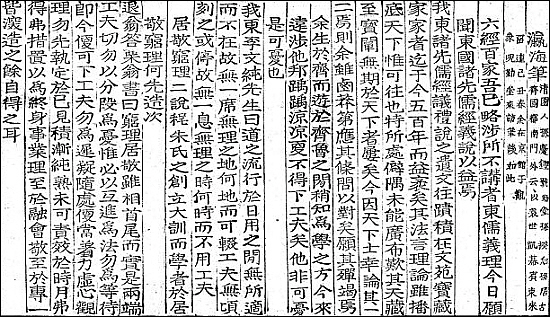 瀛海筆
六經百家吾已略涉所不講者東儒義理今日願
聞東國諸先儒經義說以益焉
我東諸先儒經議禮說之遺文往蹟積在文苑寶藏
家家者迄于今五百年而益衆矣其法言理論雖播
底天下惟可往也特所處僻隅未能廣布歎其天藏
至寶無期於天下者矣今因天下士幸論其二
一焉則余雖鹵殊第應其條問以對矣願其殫竭焉
余生於齊而遊於齊魯之間稍知爲學之方今來
遠涉他邦踽踽涼涼更不得下工夫矣他非可憂
是可憂也
我東李文純先生曰道之流行於日用之間無所適
而不在故無一席無理之地何地而可輟工夫無頃
刻之或停故無一息無理之時何時而不用工夫
居敬窮理二說程朱氏之創立大訓而學者於居
敬窮理何先造次
退翁答栗翁書曰窮理居敬雖相首尾而實是兩端
工夫切勿以分段爲憂惟必以互進爲法勿爲等待
即今便可下工夫勿爲遲疑隨處便當着力虛心觀
理勿先執定於己見積漸純熟未可責效於時月弗
得弗措置以爲終身事業理至於融會敬至於專一
皆深造之餘自得之耳